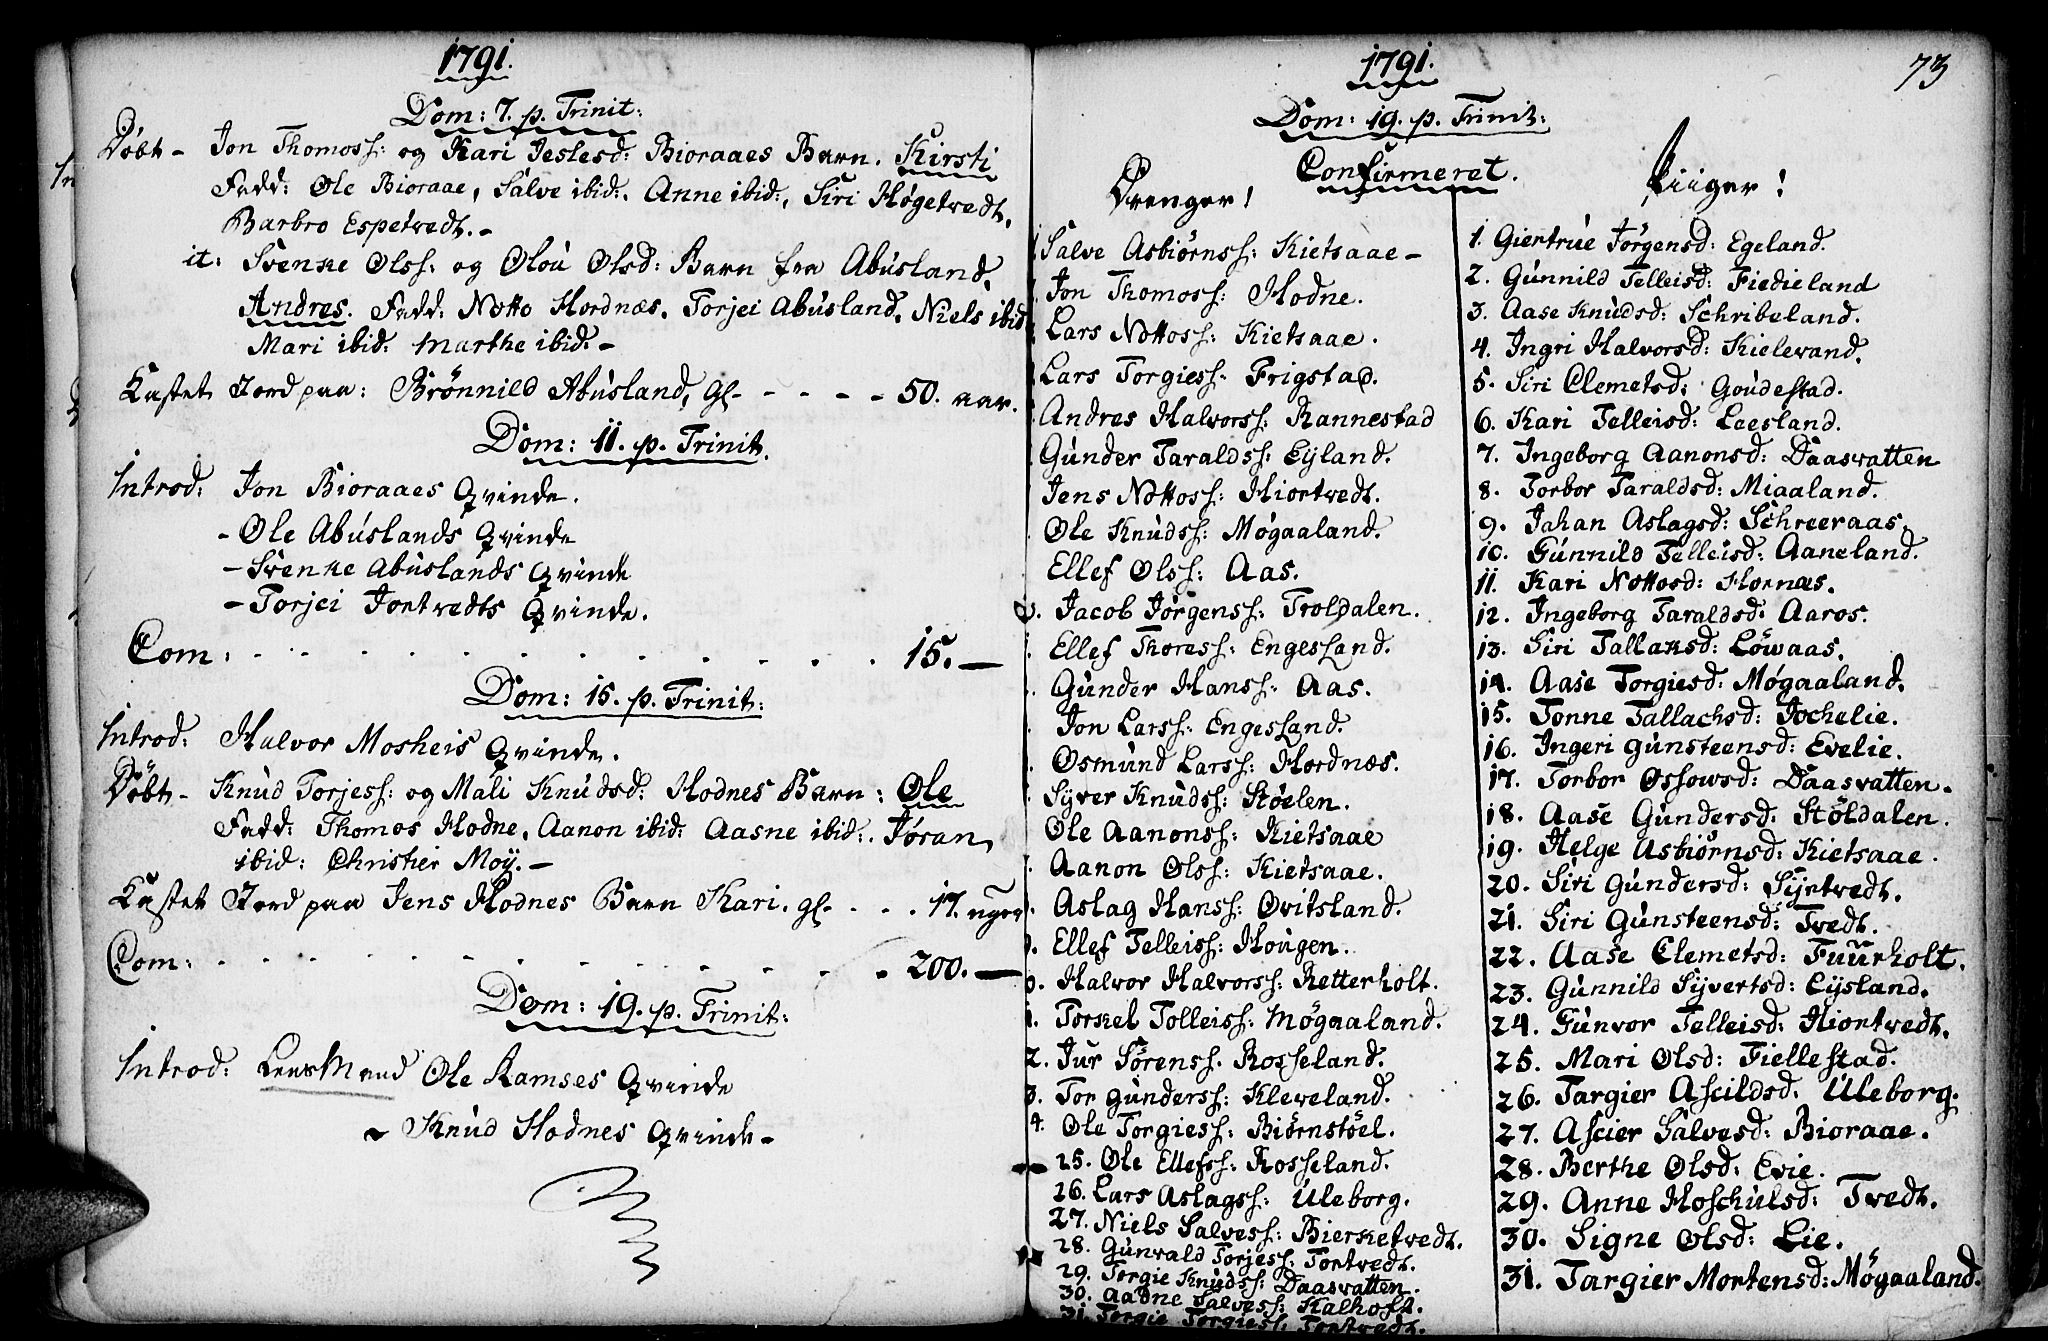 1791.
Dom: 7. p. Trinit:
Døbt - Jon Thomoss: og Kari Jeslesd: Bioraaes Barn. Kirsti
Fadd: Ole Bioraae, Salve ibid: Anne ibid:, Siri Høgetvedt,
Barbro Espetvedt. -
it: Svenke Olss: og Oloú Olsd: Barn fra Abúsland.
Andres. Fadd: Notto Hordnæs. Torjei Abúsland. Niels ibid
Mari ibid: Marthe ibid. -
Kastet Jord paa: Brønnild Abúsland, gl - - - - - 50. aar.
Dom: 11. p. Trinit.
Introd: Jon Bioraaes Qvinde.
- Ole Abúslands Qvinde
- Svenke Abúslands Qvinde
- Torjei Jortvedts Qvinde.
Com: . . . . . . . . . . . . 15. —
Dom: 15. p. Trinit:
Introd: Halvor Mosheis Qvinde.
Døbt - Knúd Torjess: og Mali Knúdsd: Hodnes Barn: Ole
Fadd: Thomos Hodne, Aanon ibid: Aasne ibid:. Jøran
ibid: Christier Moÿ. -
Kastet Jord paa Jens Hodnes Barn Kari. gl - . . . 17. uger
Com: . . . . . . . . . . . . 200. —
Dom: 19. p. Trinit:
Introd: LensMand Ole Ramses Qvinde
~ Knúd Hodnes Qvinde -
1791.
73
Dom: 19. p. Trinit:
Confirmeret.
Drenger!
Salve Asbiørnss: Kietsaae -
Jon Thomoss: Hodne.
Lars Nottoss: Kietsaae.
Lars Torgiess: Frigstad.
Andres Halvorss: Rannestad
Gúnder Taraldss: Eÿland.
Jens Nottoss: Hiortvedt.
Ole Knúdss: Møgaaland.
Ellef Olss: Aas.
0. Jacob Jørgenss: Troldalen.
Ellef Thoress: Engesland.
Gúnder Hanss: Aas.
Jon Larss: Engesland.
Osmúnd Larss: Hordnæs.
Syver Knúdss: Støelen.
Ole Aanonss: Kietsaae
Aanon Olss: Kietsaae.
Aslag Hanss: Ovitsland.
Ellef Telleiss: Hoúgen.
0. Halvor Halvorss: Retterholt.
1. Torkel Tolleiss: Møgaaland.
2. Jur Sørenss: Rosseland.
3. Tor Gúnderss: Kleveland.
4. Ole Torgiess: Biørnstøel.
25. Ole Ellefss: Rosseland.
26. Lars Aslagss: Úleborg.
27. Niels Salvess: Bierketvedt.
28. Gúnvald Torjess: Tortvedt.
29. Torgie Knúdss: Daasvatten.
30. Aadne Salvess: Kalhoft.
31. Torgie Torgiess: Tortvedt.
Piiger!
1. Giertrúe Jørgensd: Egeland.
2. Gúnnild Telleisd: Fiedieland
3. Aase Knúdsd: Schribeland.
4. Ingri Halvorsd: Kielevand.
5. Siri Clemetsd: Goúdestad.
6. Kari Telleisd: Leesland.
7. Ingeborg Aanonsd: Daasvatten
8. Torbor Taraldsd: Miaaland.
9. Johan Aslagsd: Schreeraas.
10. Gúnnild Telleisd: Aaneland.
11. Kari Nottosd: Hornæs.
12. Ingeborg Taraldsd: Aaros.
13. Siri Tallaksd: Løwaas.
14. Aase Torgiesd: Møgaaland.
15. Tonne Tallachsd: Jochelie.
16. Ingeri Gúnsteensd: Evelie.
17. Torbor Ossowsd: Daasvatten.
18. Aase Gúndersd: Støldalen.
19. Helge Asbiørnsd: Kietsaae.
20. Siri Gúndersd: Syntvedt.
21. Siri Gúnsteensd: Tvedt.
22. Aase Clemetsd: Fuúrholt.
23. Gúnnild Syvertsd: Eÿsland.
24. Gúnvor Telleisd: Hiortvedt.
25. Mari Olsd: Fiellestad.
26. Targier Ascildsd. Úleborg.
27. Ascier Salvesd: Bioraae.
28. Berthe Olsd: Evie.
29. Anne Hoschúlsd: Tvedt.
30. Signe Olsd: Lie.
31. Targier Mortensd: Møgaaland.